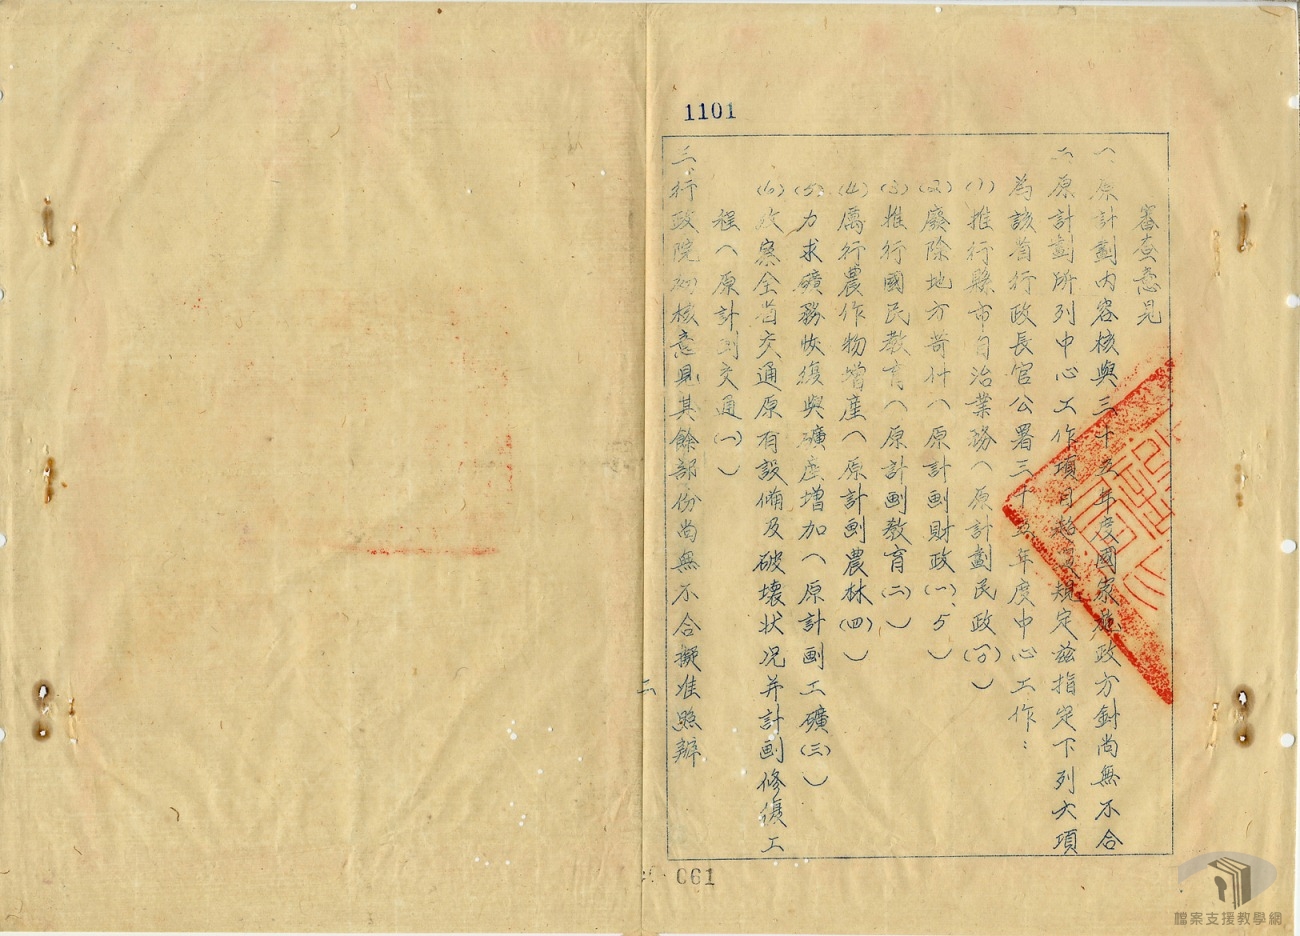 1101
審查意見
一、原計劃內容核與三十五年度國家施政方針尚無不合
二、原計劃所列中心工作項目超過規定茲指定下列六項
為該省行政長官公署三十五年度中心工作：
(1)推行縣市自治業務（原計劃民政(一)）
(2)廢除地方苛什（原計劃財政(一)、5）
(3)推行國民教育（原計劃教育(二)）
(4)厲行農作物增產（原計劃農林(四)）
(5)力求礦務恢復與礦產增加（原計劃工礦(三)）
(6)考察全省交通原有設備及破壞狀况并計劃修復工
程（原計劃交通(一)）
三、行政院初核意見其餘部份尚無不合擬准照辦
二
061
檔案支援教學網